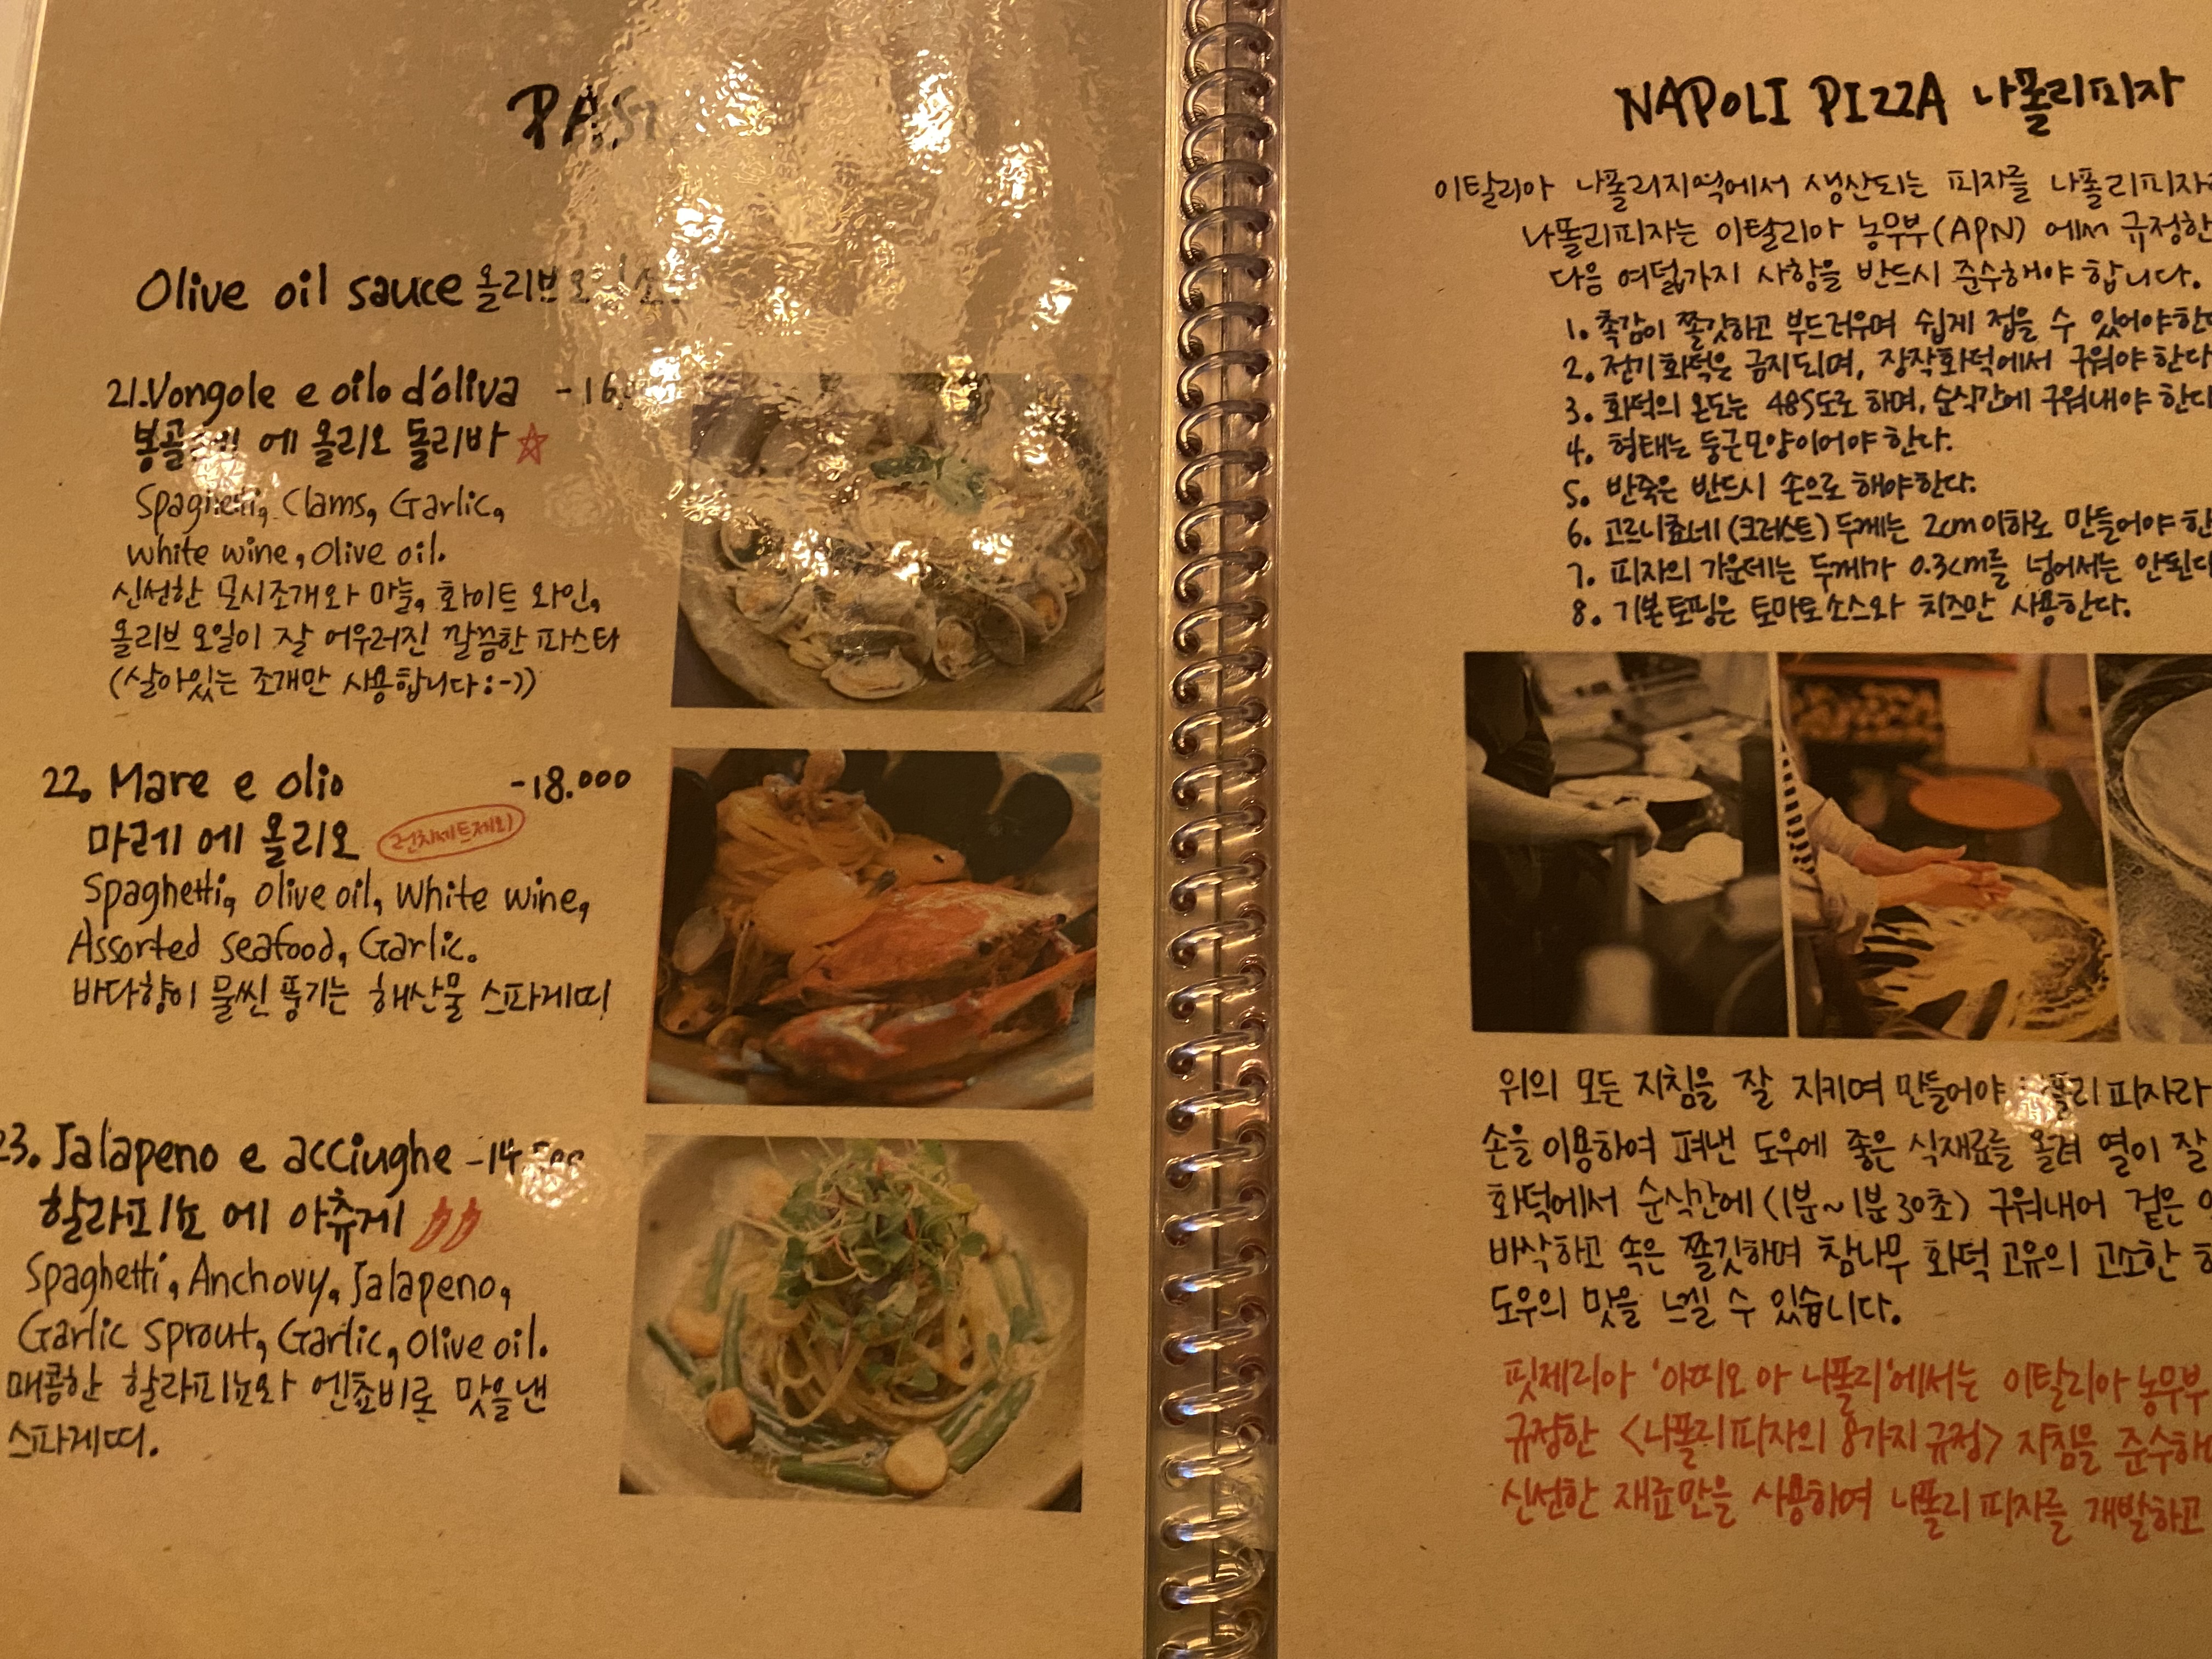 Olive oil sauce 올리브
21.Vongole e oilo d'oliva
에 올리오 돌리바
Spaghetti, Clams, Garlic,
white wine, Olive oil.
신선한 모시조개와 마늘, 화이트 와인,
올리브 오일이 잘 어우러진 깔끔한 파스타
(살아있는 조개만 사용합니다:-))
22. Mare e olio -18.000
마레 에 올리오 런치세트제외
Spaghetti, Olive oil, White wine,
Assorted seafood, Garlic.
바다향이 물씬 풍기는 해산물 스파게띠
23. Jalapeno e acciughe
할라피뇨 에 아츄게
Spaghetti, Anchovy, Jalapeno,
Garlic sprout, Garlic, Olive oil.
매콤한 할라피뇨와 엔쵸비로 맛을낸
스파게띠.
NAPOLI PIZZA 나폴리피자
이탈리아 나폴리지역에서 생산되는 피자를 나폴리피자
나폴리피자는 이탈리아 농무부(APN) 에서 규정한
다음 여덟가지 사항을 반드시 준수해야 합니다.
1. 촉감이 쫄깃하고 부드러우며 쉽게 접을 수 있어야한다
2. 전기화덕은 금지되며, 장작화덕에서 구워야 한다
3. 화덕의 온도는 485도로 하며, 순식간에 구워내야 한다
4. 형태는 둥근모양이어야 한다.
5. 반죽은 반드시 손으로 해야한다.
6. 고르니쵸네(크러스트) 두께는 2cm이하로 만들어야 한
7. 피자의 가운데는 두께가 0.3cm를 넘어서는 안된다
8. 기본토핑은 토마토소스와 치즈만 사용한다.
위의 모든 지침을 잘 지키며 만들어야 나폴리 피자라
손을 이용하여 펴낸 도우에 좋은 식재료를 올려 열이 잘
화덕에서 순식간에 (1분~1분30초) 구워내어 겉은
바삭하고 속은 쫄깃하며 참나무 화덕 고유의 고소한
도우의 맛을 느낄 수 있습니다.
핏제리아 '아띠오 아 나폴리'에서는 이탈리아 농무부
규정한 <나폴리피자의 8가지 규정> 지침을 준수하
신선한 재료만을 사용하여 나폴리 피자를 개발하고